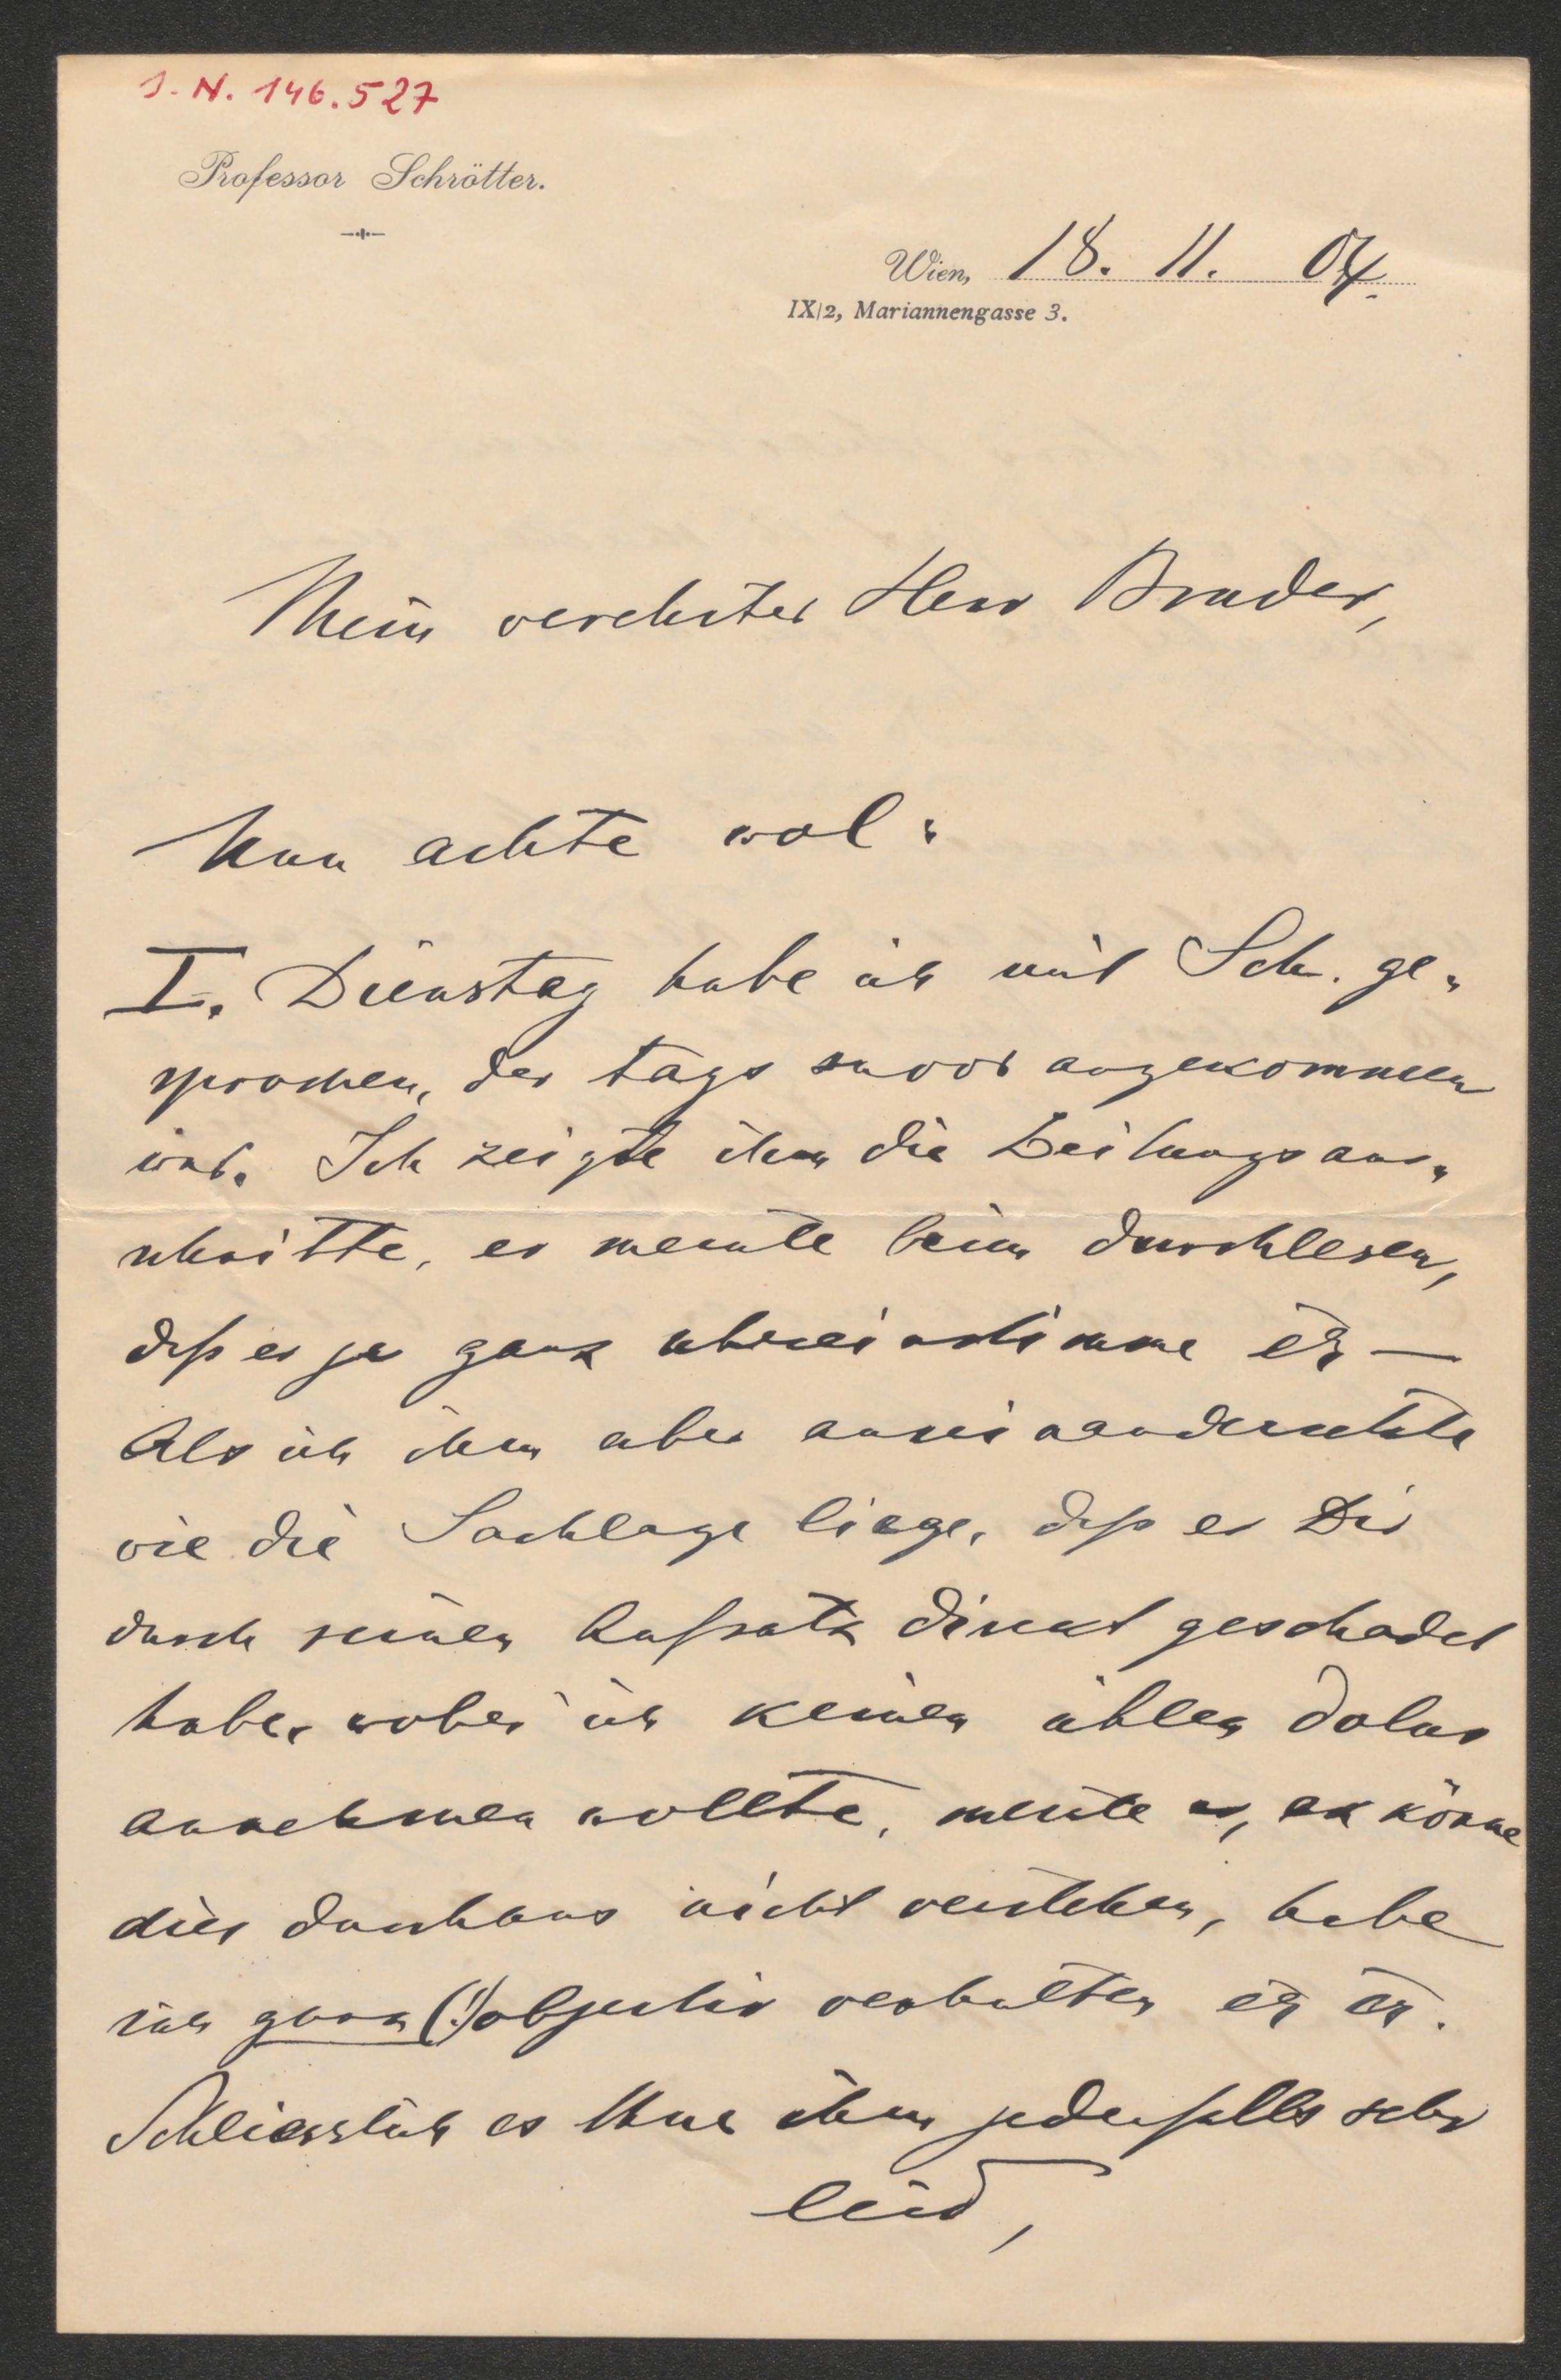 J. N. 146.527
Professor Schrötter.
Wien, 18. 11. 04.
IX|2, Mariannengasse 3.
Mein verehrter Herr Bruder,
Nun achte wol:
I. Dienstag habe ich mit Sch. ge-
sprochen, der tags zuvor angekommen
war. Ich zeigte ihm die Zeitungsaus-
schnitte, er meinte beim durchlesen,
dass er ja ganz übereinstimme etz —
Als ich ihm aber auseinandersetzte
wie die Sachlage liege, dass er Dir
durch seinen Aufsatz direct geschadet
habe, wobei ich keinen üblen dolus
annehmen wollte, meinte er, er könne
dies durchaus nicht verstehen, habe
sich ganz (!) objectiv verhalten etz etz.
Schliesslich es thue ihm jedesfalls sehr
leid,